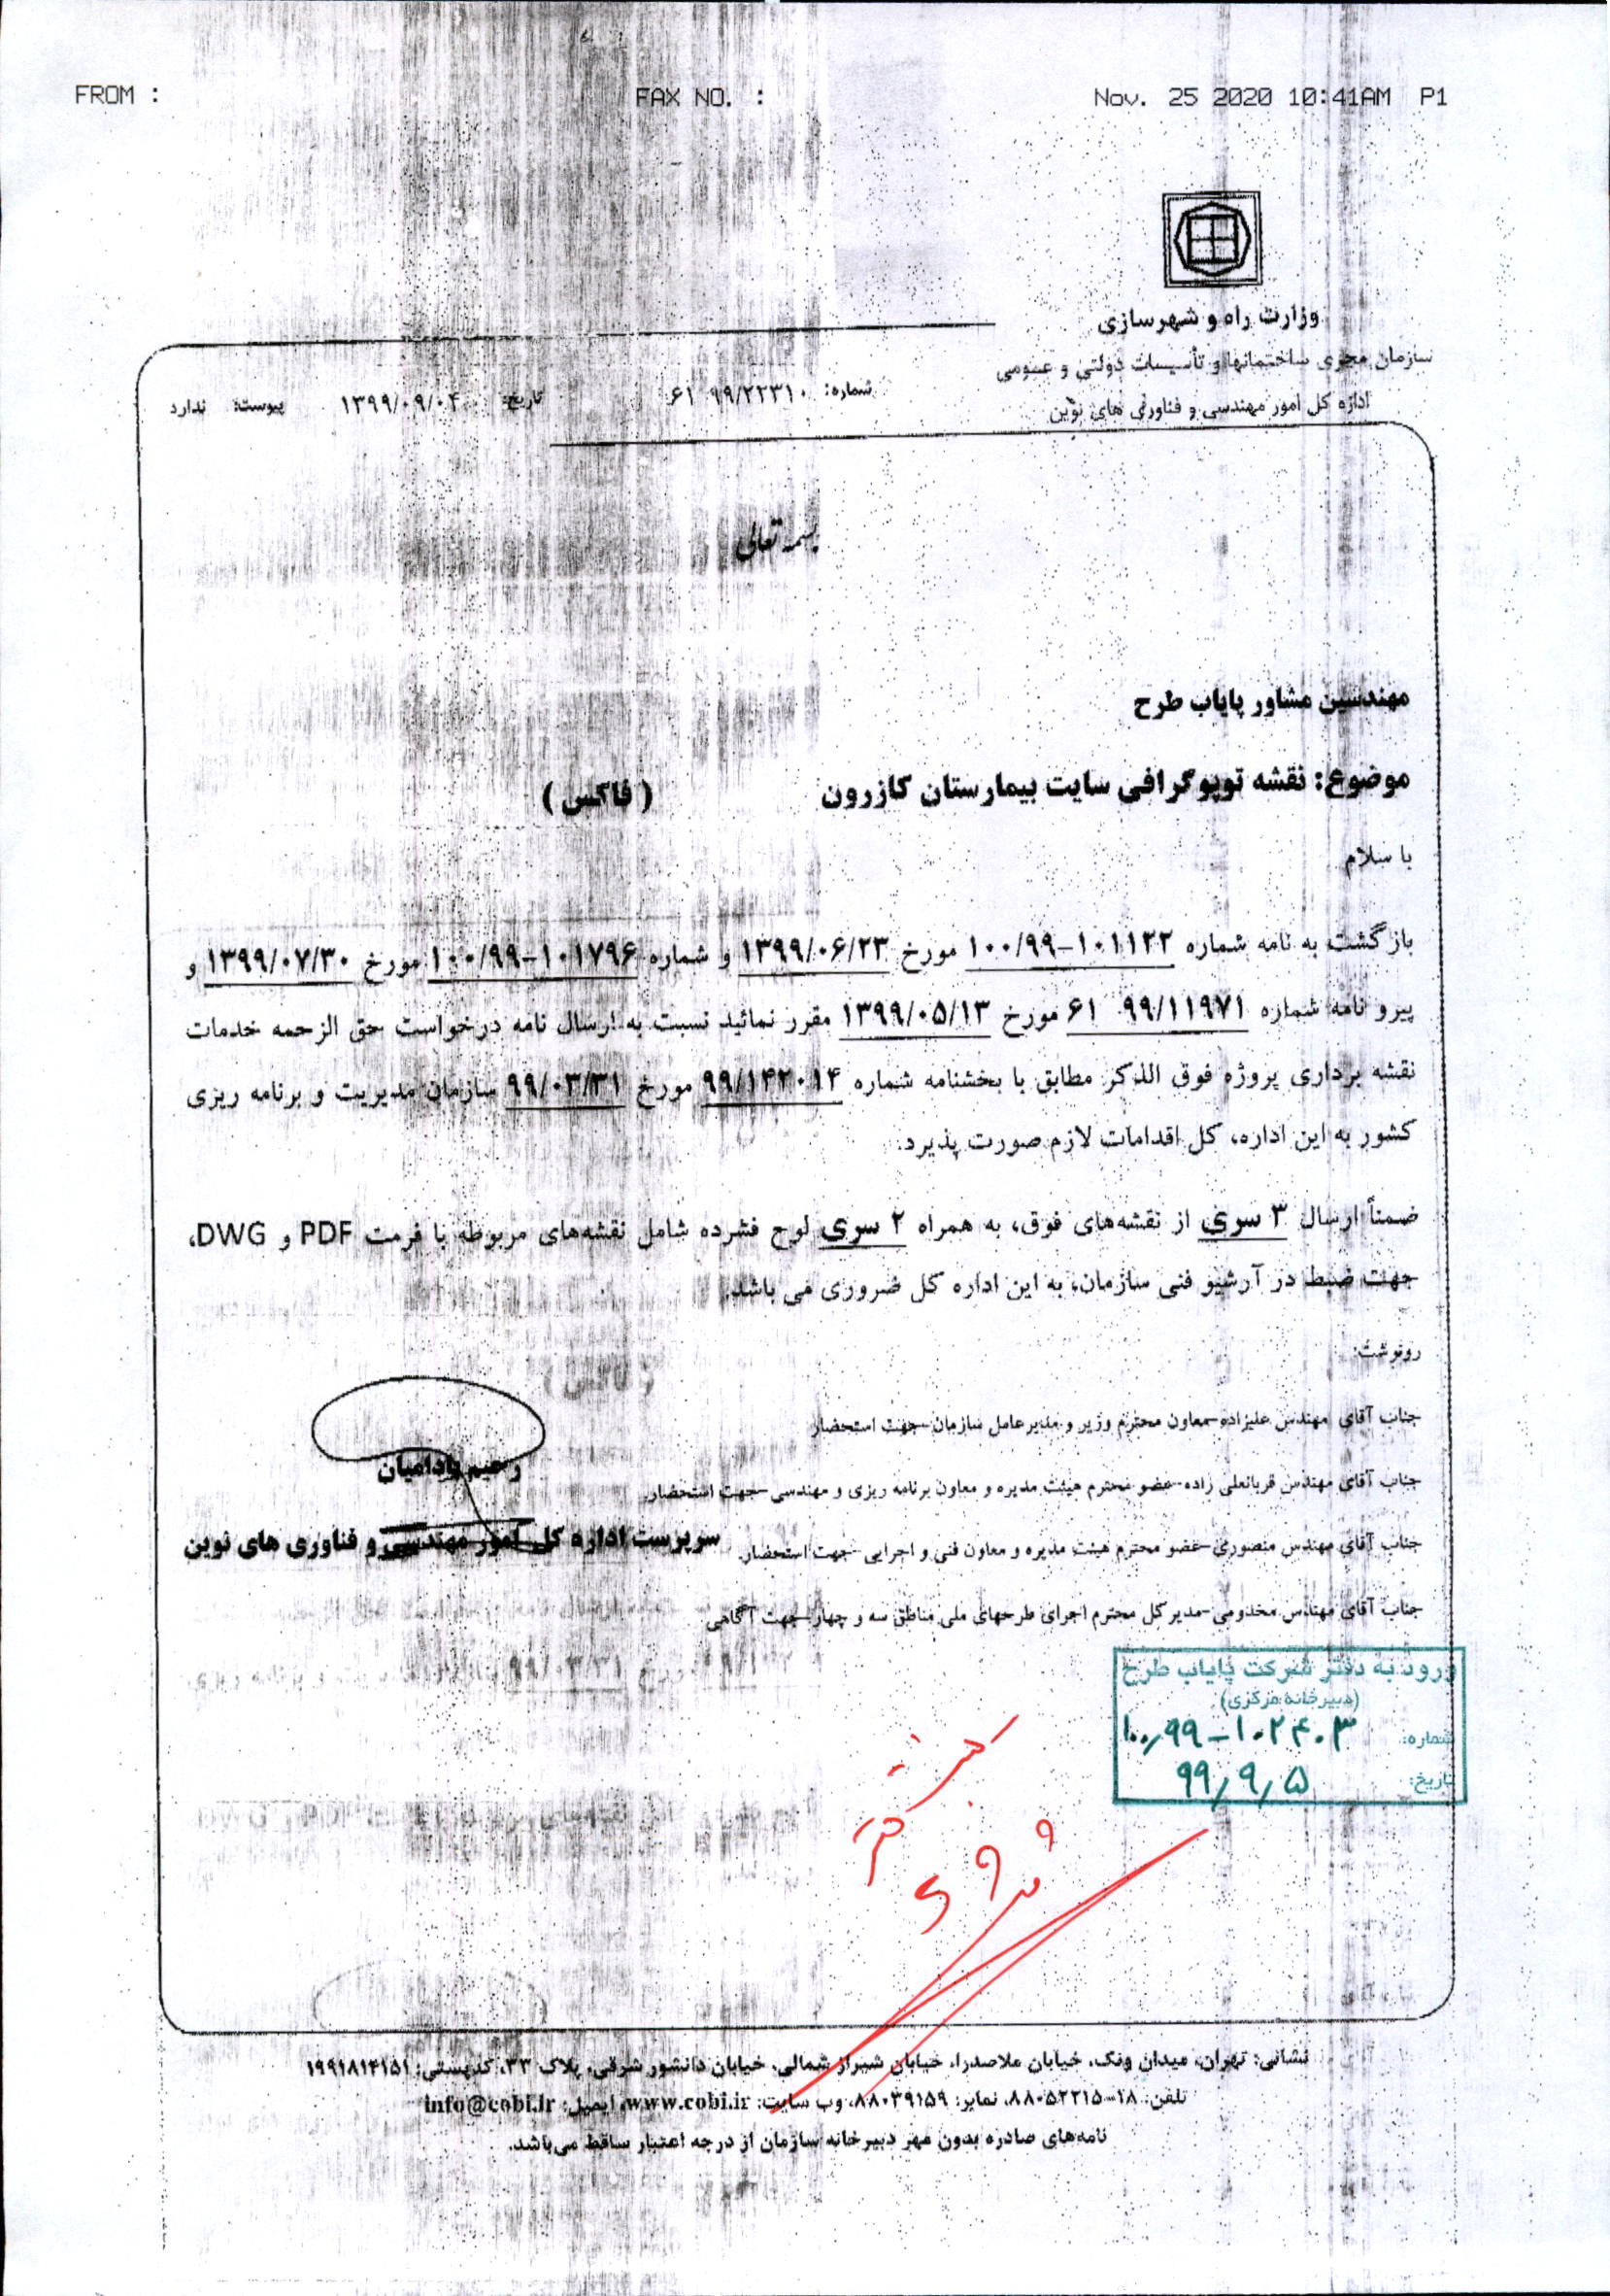 FROM :
FAX NO. :
Nov. 25 2020 10:41AM P1
وزارت راه و شهرسازی
سازمان مجری ساختمانها و تأسیسات دولتی و عمومی
اداره کل امور مهندسی و فناوری های نوین
شماره: ۶۱ ۹۹/۲۲۳۱۰
تاریخ: ۱۳۹۹/۰۹/۰۴
پیوست: ندارد
بسمه تعالی
مهندسین مشاور پایاب طرح
موضوع: نقشه توپوگرافی سایت بیمارستان کازرون ( فاکس )
با سلام
بازگشت به نامه شماره ۱۰۰/۹۹-۱۰۱۱۲۲ مورخ ۱۳۹۹/۰۶/۲۳ و شماره ۱۰۰/۹۹-۱۰۱۷۹۶ مورخ ۱۳۹۹/۰۷/۳۰ و
پیرو نامه شماره ۹۹/۱۱۹۷۱ ۶۱ مورخ ۱۳۹۹/۰۵/۱۳ مقرر نمائید نسبت به ارسال نامه درخواست حق الزحمه خدمات
نقشه برداری پروژه فوق الذکر مطابق با بخشنامه شماره ۹۹/۱۴۲۰۱۴ مورخ ۹۹/۰۳/۳۱ سازمان مدیریت و برنامه ریزی
کشور به این اداره، کل اقدامات لازم صورت پذیرد.
ضمناً ارسال ۳ سری از نقشه‌های فوق، به همراه ۲ سری لوح فشرده شامل نقشه‌های مربوطه با فرمت PDF و DWG،
جهت ضبط در آرشیو فنی سازمان، به این اداره کل ضروری می باشد.
رونوشت:
جناب آقای مهندس علیزاده-معاون محترم وزیر و مدیرعامل سازمان-جهت استحضار
جناب آقای مهندس قربانعلی زاده-عضو محترم هیئت مدیره و معاون برنامه ریزی و مهندسی-جهت استحضار
جناب آقای مهندس منصوری-عضو محترم هیئت مدیره و معاون فنی و اجرایی-جهت استحضار
جناب آقای مهندس مخدومی-مدیرکل محترم اجرای طرحهای ملی مناطق سه و چهار-جهت آگاهی
رحیم بادامیان
سرپرست اداره کل امور مهندسی و فناوری های نوین
ورود به دفتر شرکت پایاب طرح
(دبیرخانه مرکزی)
شماره: ۱۰۰٫۹۹-۱۰۲۴۰۳
تاریخ: ۹۹٫۹٫۵
نشانی: تهران، میدان ونک، خیابان ملاصدرا، خیابان شیراز شمالی، خیابان دانشور شرقی، پلاک ۳۳، کدپستی: ۱۹۹۱۸۱۴۱۵۱
تلفن: ۱۸-۸۸۰۵۲۲۱۵، نمابر: ۸۸۰۳۹۱۵۹، وب سایت: www.cobi.ir، ایمیل: info@cobi.ir
نامه‌های صادره بدون مهر دبیرخانه سازمان از درجه اعتبار ساقط می‌باشد.